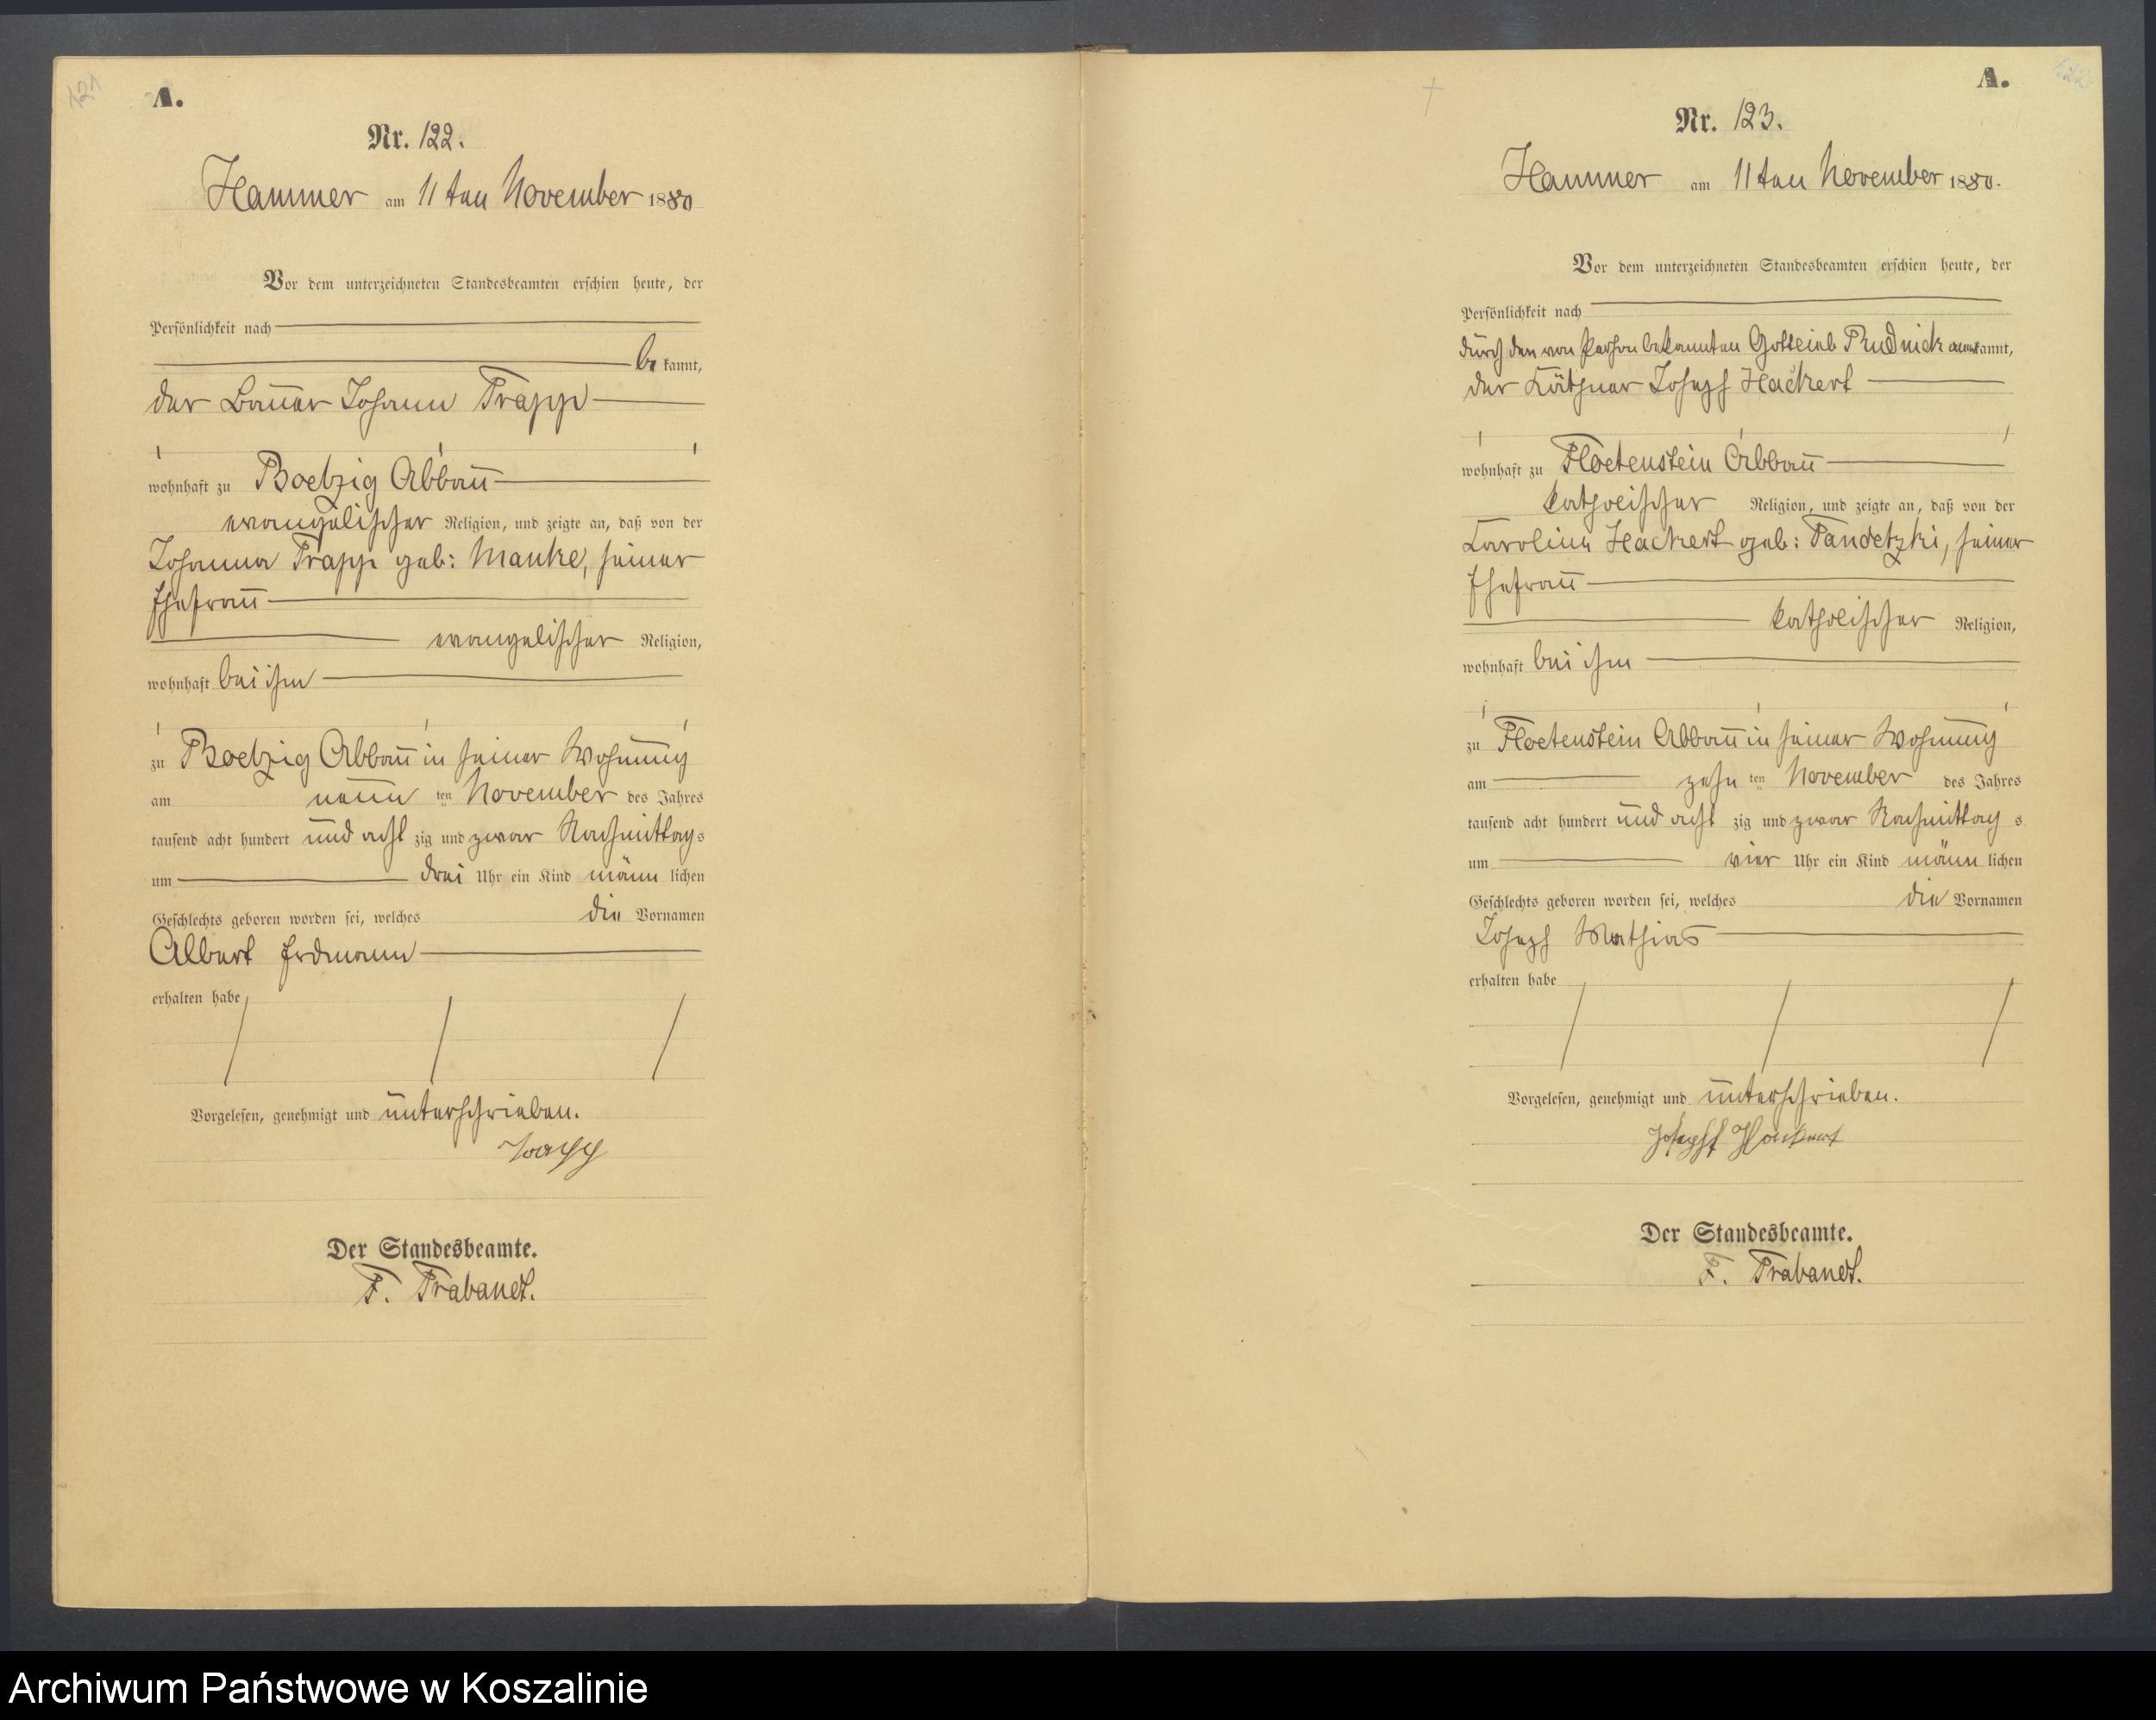 121
A.
Nr. 122.
Hammer am 11ten November 1880
Vor dem unterzeichneten Standesbeamten erschien heute, der
Persönlichkeit nach
bekannt,
der Bauer Johann Trapp
wohnhaft zu Boetzig Abbau
evangelischer Religion, und zeigte an, daß von der
Johanna Trapp geb: Manke, seiner
Ehefrau
evangelischer Religion,
wohnhaft bei ihm
zu Boetzig Abbau in seiner Wohnung
am neun ten November des Jahres
tausend acht hundert und acht zig und zwar Nachmittags
um drei Uhr ein Kind männlichen
Geschlechts geboren worden sei, welches die Vornamen
Albert Erdmann
erhalten habe
Vorgelesen, genehmigt und unterschrieben.
Trapp
Der Standesbeamte.
F. Trabandt.
122
A.
Nr. 123.
Hammer am 11ten November 1880.
Vor dem unterzeichneten Standesbeamten erschien heute, der
Persönlichkeit nach
durch den von Person bekannten Gottlieb Rudnick anerkannt,
der Käthner Joseph Hackert
wohnhaft zu Floetenstein Abbau
katholischer Religion, und zeigte an, daß von der
Karoline Hackert geb: Pandetzki, seiner
Ehefrau
katholischer Religion,
wohnhaft bei ihm
zu Floetenstein Abbau in seiner Wohnung
am zehn ten November des Jahres
tausend acht hundert und acht zig und zwar Nachmittags
um vier Uhr ein Kind männlichen
Geschlechts geboren worden sei, welches die Vornamen
Joseph Mathias
erhalten habe
Vorgelesen, genehmigt und unterschrieben.
Josepht Hackert
Der Standesbeamte.
F. Trabandt.
Archiwum Państwowe w Koszalinie